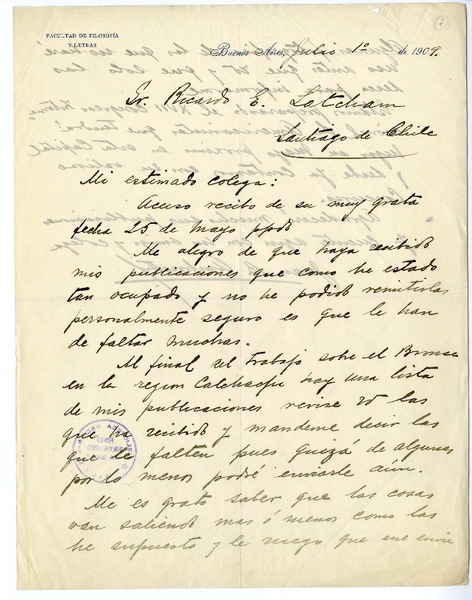 FACULTAD DE FILOSOFÍA
Y LETRAS
Buenos Aires, Julio 1º de 1909.
Sr. Ricardo E. Latcham
Santiago de Chile
Mi estimado colega:
Acuso recibo de su muy grata
fecha 25 de Mayo ppdo
Me alegro de que haya recibido
mis publicaciones que como he estado
tan ocupado y no he podido remitirlas
personalmente seguro es que le han
de faltar muchas.
Al final del trabajo sobre el Bronce
en la region Calchaquí hay una lista
de mis publicaciones revise vd las
que ha recibido y mandeme decir las
que le falten pues quizá de algunas
por lo menos podré enviarle aun.
Me es grato saber que las cosas
van saliendo mas ó menos como las
he supuesto y le ruego que me envie